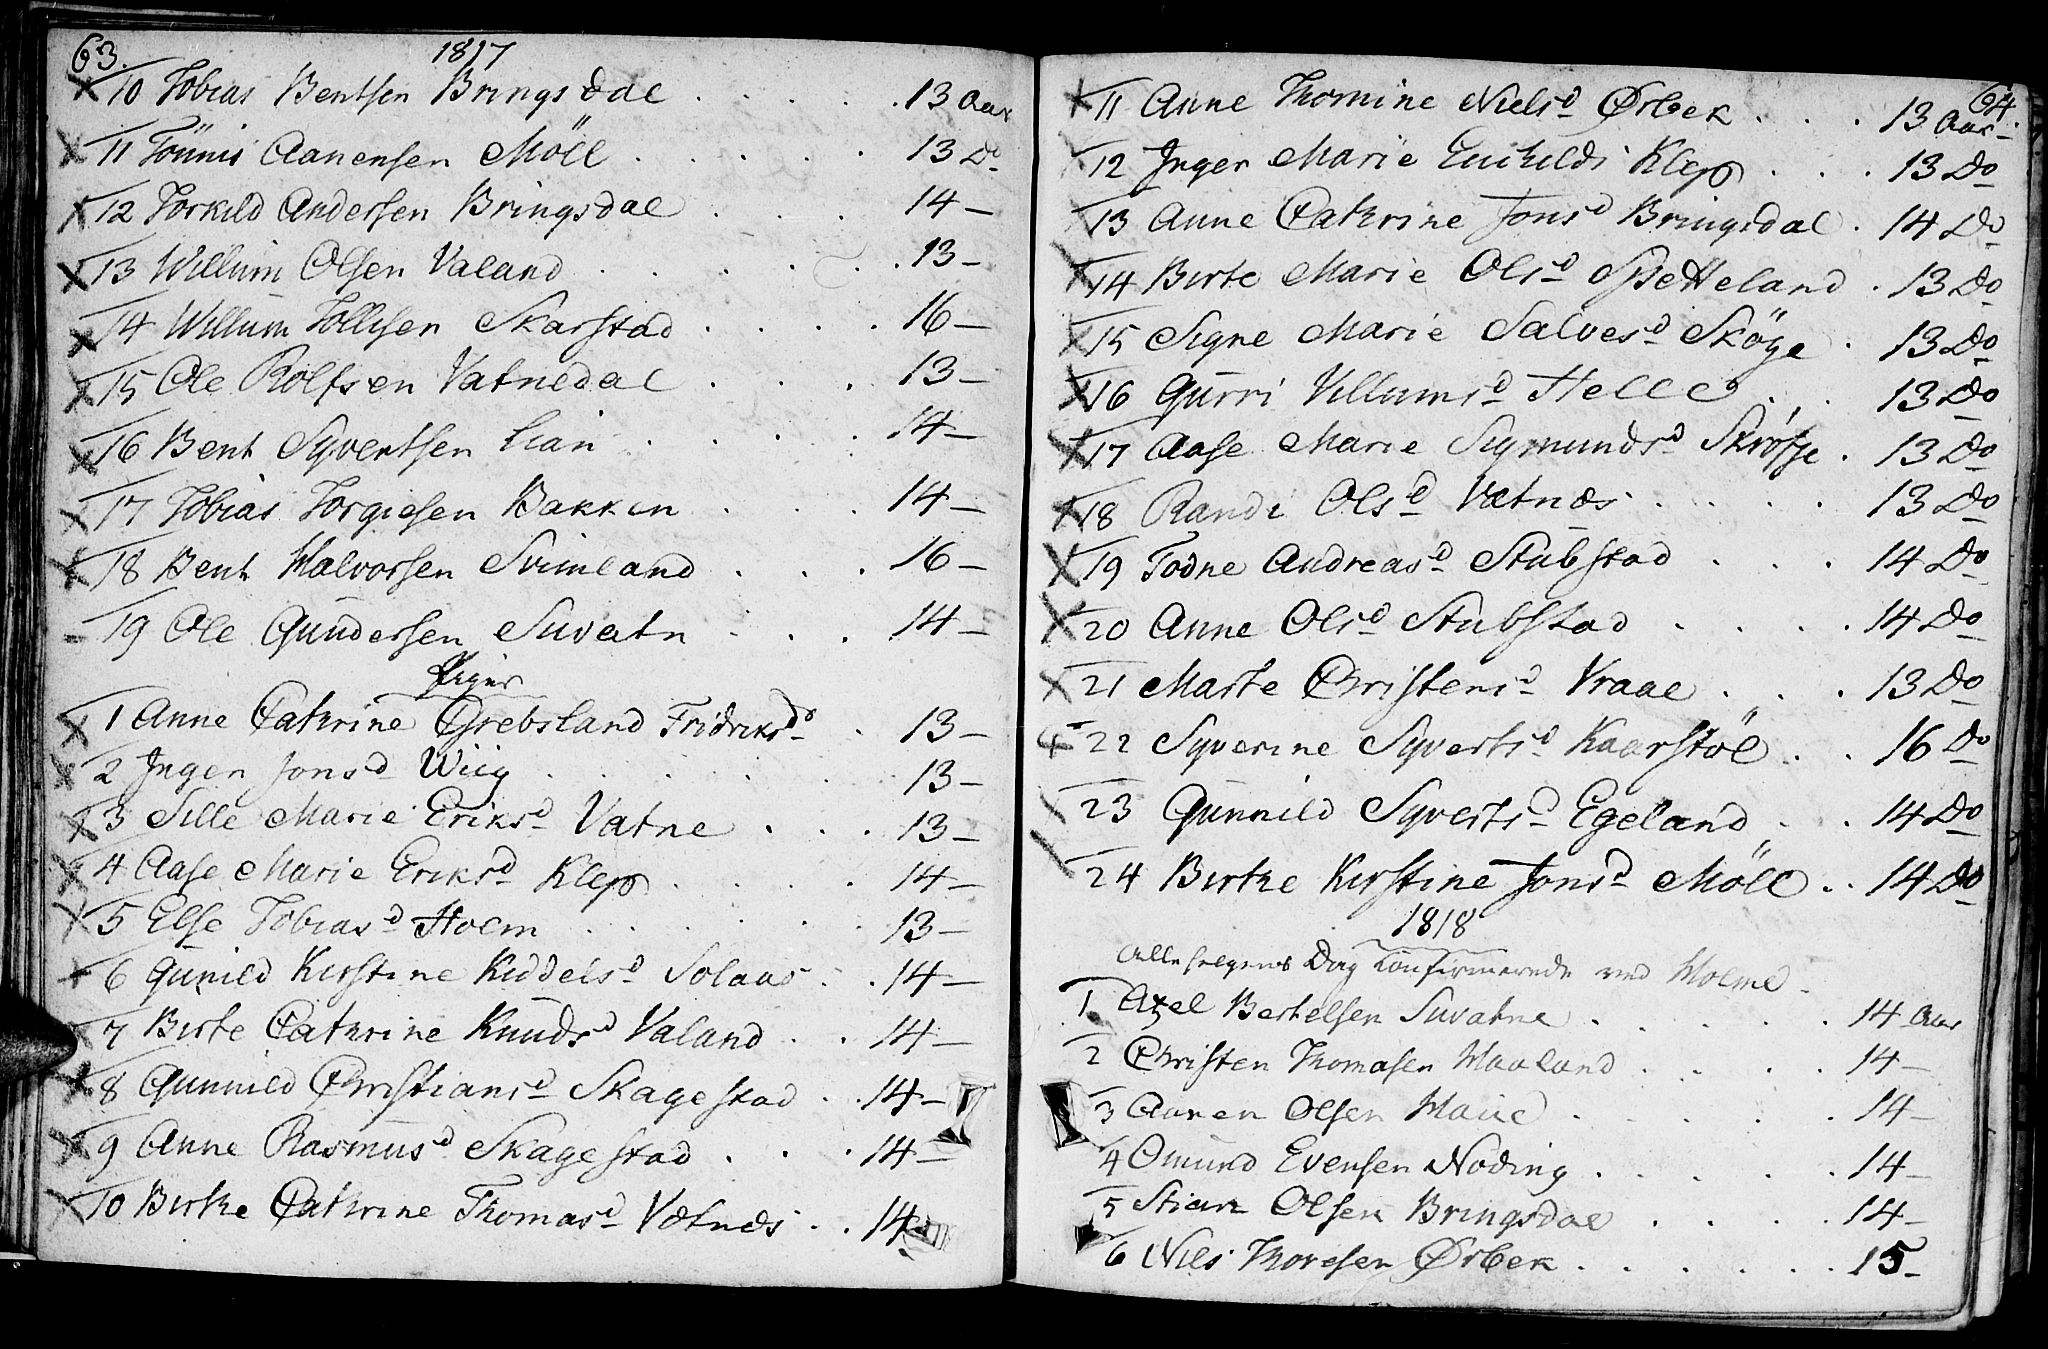 63.
1817
10 Tobias Bentsen Bringsdal . . . . . 13 Aar
11 Tönnis Aanensen Möll . . . . . 13 Do
12 Torkild Andersen Bringsdal . . . 14 —
13 Willum Olsen Valand . . . . . . 13 —
14 Willum Tollisen Skarstad . . . . 16 —
15 Ole Rolfsen Vatnedal . . . 13 —
16 Bent Syvertsen Lian . . . . 14 —
17 Tobias Torgiesen Bakken . . . 14 —
18 Bent Halvorsen Svimland . . . 16 —
19 Ole Gundersen Suvatn . . . 14 —
Piger
1 Anne Cathrine Grebsland Fridriksd . 13 —
2 Inger Jonsd Wiig . . . . . . 13 —
3 Sille Marie Eriksd Vatne . . . 13 —
4 Aase Marie Eriksd Klep . . . . 14 —
5 Else Tobiasd Holm . . . . . 13 —
6 Gunild Kirstine Kiddelsd Solaas . . 14 —
7 Birte Cathrine Knudsd Valand . . 14 —
8 Gunnild Christiansd Skagestad . . 14 —
9 Anne Rasmusd Skagestad . . . 14 —
10 Birthe Cathrine Thomasd Vatnæs . . 14
64.
11 Anne Thomine Nielsd Ørbek . . . 13 Aar
12 Inger Marie Klep . . . 13 Do
13 Anne Cathrine Jonsd Bringsdal . 14 Do
14 Birte Marie Olsd Spetteland . 13 Do
15 Signe Marie Salvesd Sköye . 13 Do
16 Gurri Villumsd Helle . . 13 Do
17 Aase Marie Sigmundsd . 13 Do
18 Randi Olsd Vatnæs . . . . . 13 Do
19 Todne Andreasd Stubstad . . . 14 Do
20 Anne Olsd Stubstad . . . . 14 Do
21 Marte Christensd Vraae . . . 13 Do
22 Syverine Syvertsd Kaarstöl . . 16 Do
23 Gunnild Syvertsd Egeland . . 14 Do
24 Birthe Kirstine Jonsd Möll . . 14 Do
1818
Allehelgens Dag Konfirmerede ved Holme
1 Axel Bertelsen Suvatne . . . . . 14 Aar
2 Christen Thomasen Haaland . . . . 14 —
3 Aanen Olsen . . . . . 14 —
4 Omund Evensen Noding . . . . . 14 —
5 Stian Olsen Bringsdal . . . . 14 —
6 Niels Thoresen Ørbek . . . . . . 15 —